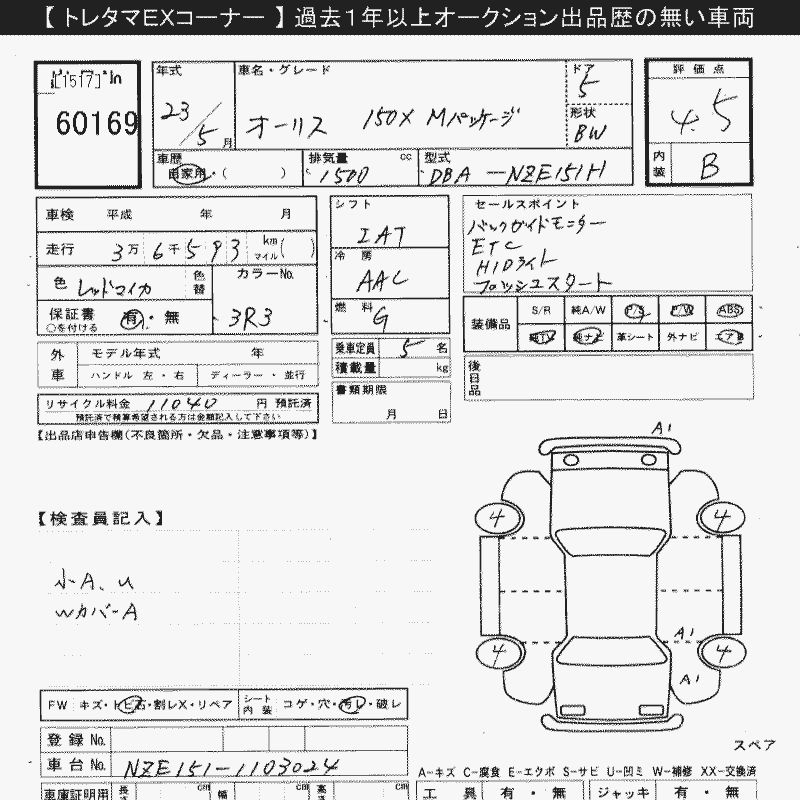 【 トレタマEXコーナー 】 過去1年以上オークション出品歴の無い車両
60169
年式 車名・グレード ドア 5 評価点
23/5月 オーリス 150X Mパッケージ 形状 BW 4.5
車歴 自家用・( ) 排気量 cc 1500 型式 DBA-NZE151H 内装 B
車検 平成 年 月
走行 3万6千593 km マイル( )
色 レッドマイカ 色替 カラーNo. 3R3
保証書 有・無
○を付ける
シフト IAT
冷房 AAC
燃料 G
セールスポイント
バックガイドモニター
ETC
HIDライト
プッシュスタート
装備品 S/R 純A/W P/S P/W ABS
純TV 純ナビ 革シート 外ナビ エアB
外車 モデル年式 年
ハンドル 左・右 ディーラー・並行
乗車定員 5 名
積載量 kg
書類期限
月 日
後日品
リサイクル料金 11040 円 預託済
預託済で積算希望される方は金額記入して下さい
【出品店申告欄(不良箇所・欠品・注意事項等)】
【検査員記入】
小A、U
WカバーA
A1
4 4
A1
4 4
A1
スペア
FW キズ・トビ石・割レX・リペア シート内装 コゲ・穴・汚レ・破レ
登録No.
車台No. NZE151-1103024
A-キズ C-腐食 E-エクボ S-サビ U-凹ミ W-補修 XX-交換済
車庫証明用 長さ cm 幅 cm 高さ cm
工具 有・無 ジャッキ 有・無